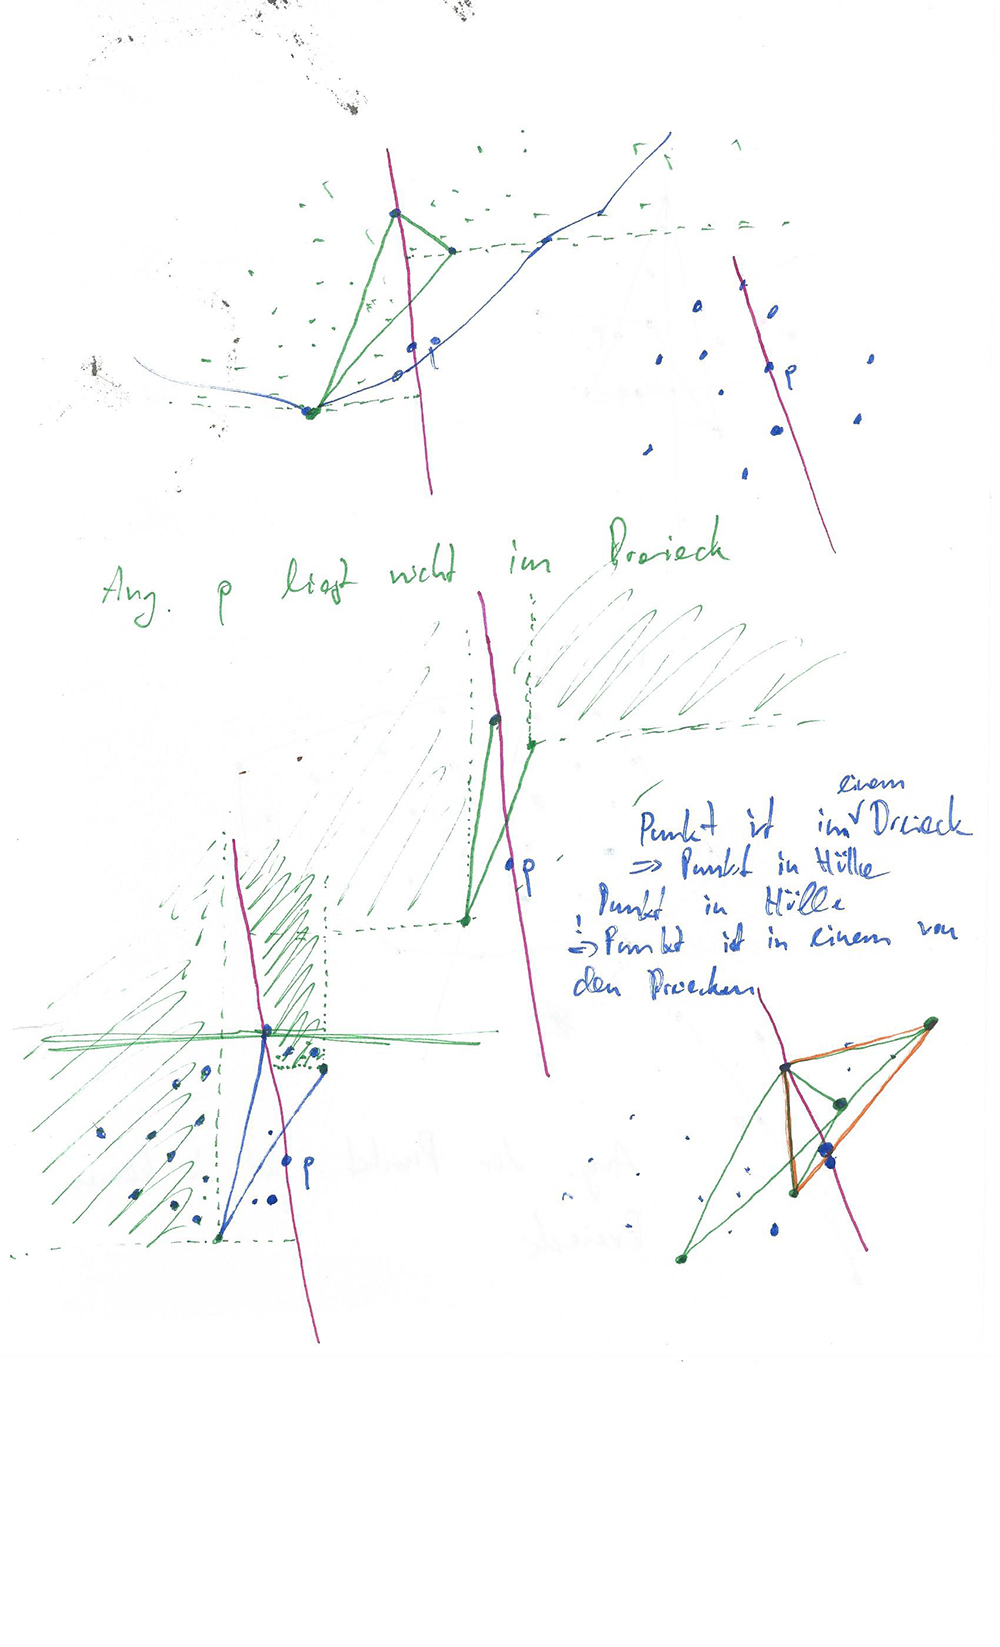 p
p
Ang. p liegt nicht im Dreieck
einem
Punkt ist im Dreieck
=> Punkt in Hülle
p
Punkt in Hülle
!
=> Punkt ist in einem von
den Dreiecken
p